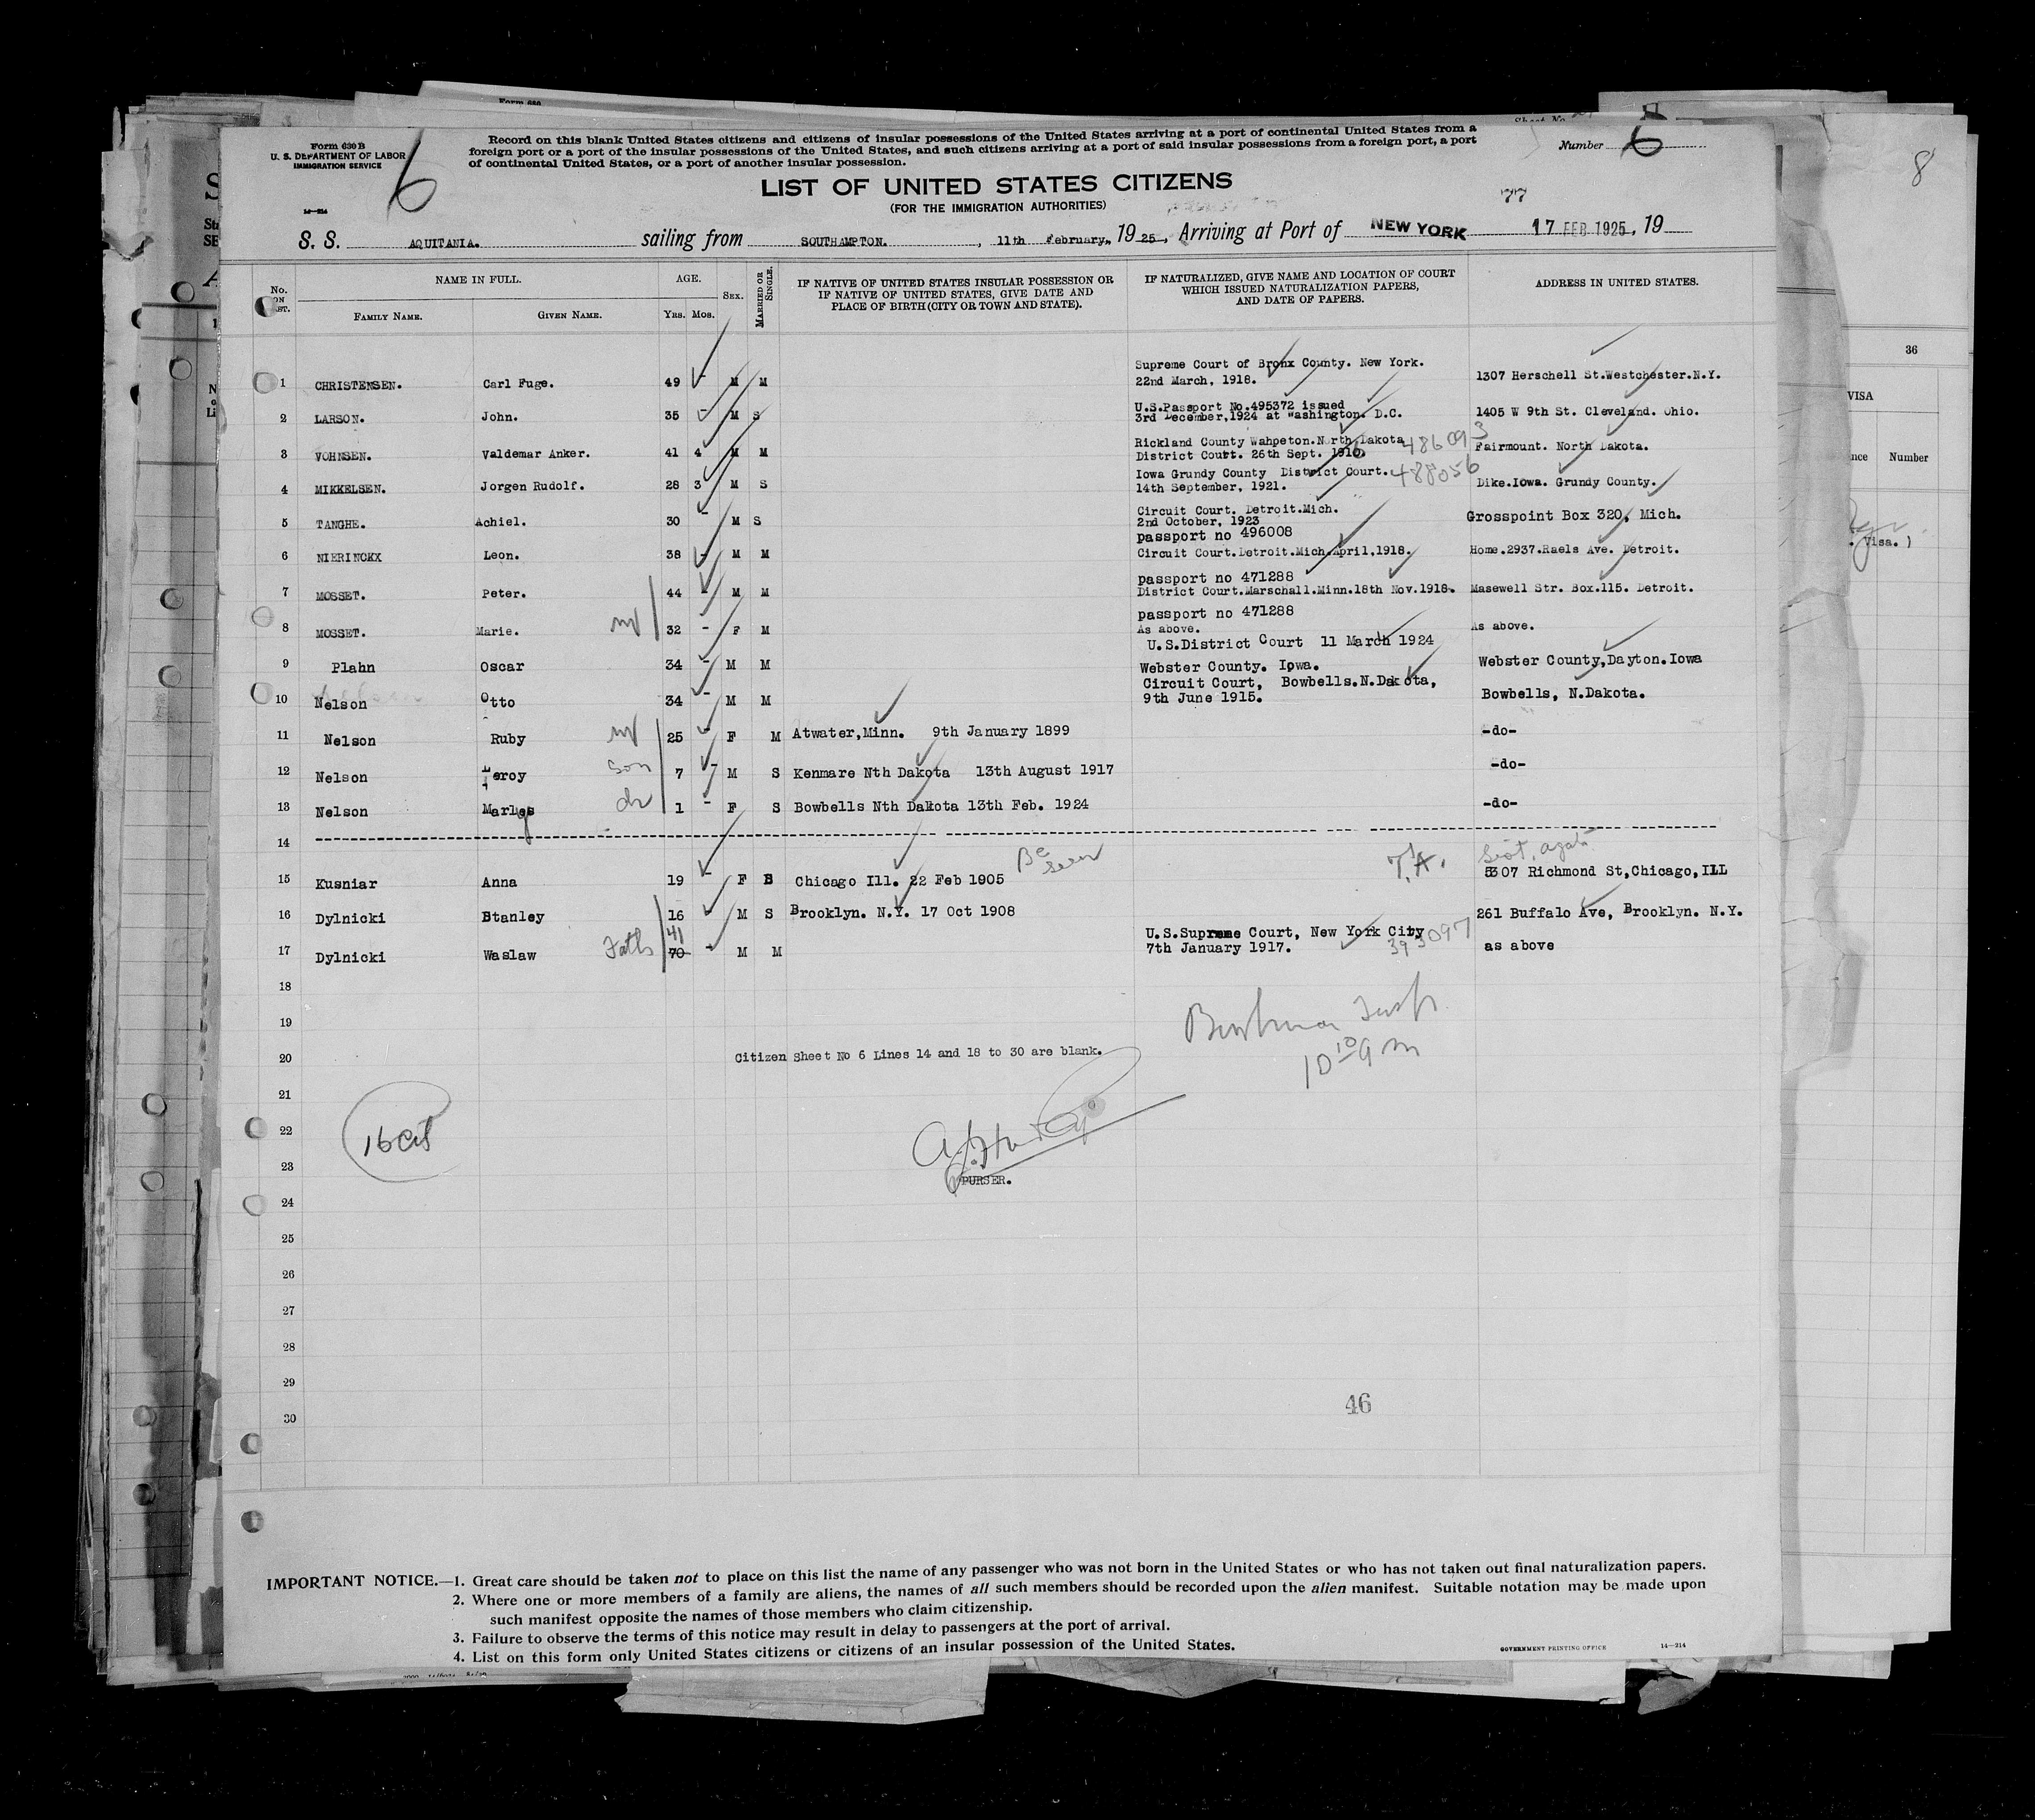 Form 630 B
U. S. DEPARTMENT OF LABOR
IMMIGRATION SERVICE
14—214
6
Record on this blank United States citizens and citizens of insular possessions of the United States arriving at a port of continental United States from a
foreign port or a port of the insular possessions of the United States, and such citizens arriving at a port of said insular possessions from a foreign port, a port
of continental United States, or a port of another insular possession.
Number 6
LIST OF UNITED STATES CITIZENS
(FOR THE IMMIGRATION AUTHORITIES)
77
S. S. AQUITANIA. sailing from SOUTHAMPTON. , 11th February, 19 25, Arriving at Port of NEW YORK 17 FEB 1925, 19
No. ON LIST. NAME IN FULL. AGE. SEX. MARRIED OR SINGLE. IF NATIVE OF UNITED STATES INSULAR POSSESSION OR IF NATIVE OF UNITED STATES, GIVE DATE AND PLACE OF BIRTH (CITY OR TOWN AND STATE). IF NATURALIZED, GIVE NAME AND LOCATION OF COURT WHICH ISSUED NATURALIZATION PAPERS, AND DATE OF PAPERS. ADDRESS IN UNITED STATES.
FAMILY NAME. GIVEN NAME. YRS. MOS.
Supreme Court of Bronx County. New York.
1 CHRISTENSEN. Carl Fuge. 49 - M M 22nd March, 1918. 1307 Herschell St.Westchester.N.Y.
U.S.Passport No.495372 issued
2 LARSON. John. 35 - M S 3rd December,1924 at Washington. D.C. 1405 W 9th St. Cleveland. Ohio.
Rickland County Wahpeton.North Dakota 486093
3 VOHNSEN. Valdemar Anker. 41 4 M M District Court. 26th Sept. 1910. Fairmount. North Dakota.
Iowa Grundy County District Court. 488056
4 MIKKELSEN. Jorgen Rudolf. 28 3 M S 14th September, 1921. Dike.Iowa. Grundy County.
Circuit Court. Detroit.Mich.
5 TANGHE. Achiel. 30 - M S 2nd October, 1923 Grosspoint Box 320, Mich.
passport no 496008
6 NIERINCKX Leon. 38 - M M Circuit Court.Detroit.Mich.April,1918. Home.2937.Raels Ave. Detroit.
passport no 471288
7 MOSSET. Peter. 44 - M M District Court.Marschall.Minn.18th Nov.1918. Masewell Str. Box.115. Detroit.
passport no 471288
8 MOSSET. Marie. 32 - F M As above. As above.
U.S.District Court 11 March 1924
9 Plahn Oscar 34 - M M Webster County. Iowa. Webster County,Dayton.Iowa
Circuit Court, Bowbells.N.Dakota,
10 Nelson Otto 34 - M M 9th June 1915. Bowbells, N.Dakota.
11 Nelson Ruby 25 - F M Atwater,Minn. 9th January 1899 -do-
12 Nelson Leroy son 7 - M S Kenmare Nth Dakota 13th August 1917 -do-
13 Nelson 1 - F S Bowbells Nth Dakota 13th Feb. 1924 -do-
14
Be seen
15 Kusniar Anna 19 - F S Chicago Ill. 22 Feb 1905 5307 Richmond St,Chicago,ILL
16 Dylnicki Stanley 16 M S Brooklyn. N.Y. 17 Oct 1908 261 Buffalo Ave, Brooklyn. N.Y.
41 U.S.Supreme Court, New York City 393097
17 Dylnicki Waslaw Fath 70 - M M 7th January 1917. as above
18
19
20 Citizen Sheet No 6 Lines 14 and 18 to 30 are blank.
21
22 16 cit
23
PURSER.
24
25
26
27
28
29
30
46
IMPORTANT NOTICE.—1. Great care should be taken not to place on this list the name of any passenger who was not born in the United States or who has not taken out final naturalization papers.
2. Where one or more members of a family are aliens, the names of all such members should be recorded upon the alien manifest. Suitable notation may be made upon
such manifest opposite the names of those members who claim citizenship.
3. Failure to observe the terms of this notice may result in delay to passengers at the port of arrival.
4. List on this form only United States citizens or citizens of an insular possession of the United States.
GOVERNMENT PRINTING OFFICE 14—214
8
36
VISA
Number
Visa. )